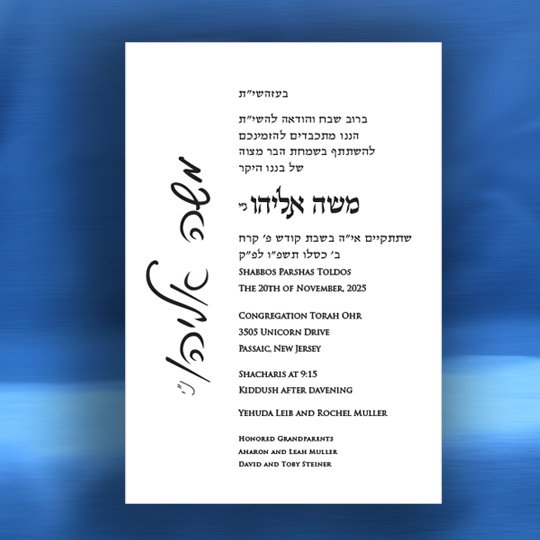 בעזהשי"ת
ברוב שבח והודאה להשי"ת
הננו מתכבדים להזמינכם
להשתתף בשמחת הבר מצוה
של בננו היקר
משה אליהו נ"י
שתתקיים אי"ה בשבת קודש פ' קרח
ב' כסלו תשפ"ו לפ"ק
Shabbos Parshas Toldos
The 20th of November, 2025
Congregation Torah Ohr
3505 Unicorn Drive
Passaic, New Jersey
Shacharis at 9:15
Kiddush after davening
Yehuda Leib and Rochel Muller
Honored Grandparents
Aharon and Leah Muller
David and Toby Steiner
משה אליהו נ"י